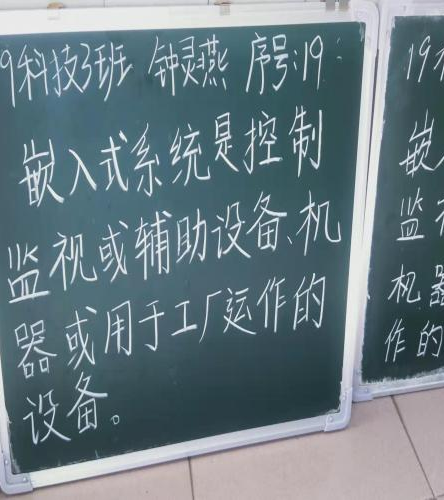 9科技3班 钟灵燕 序号:19
嵌入式系统是控制
监视或辅助设备、机
器或用于工厂运作的
设备。
19
嵌
监视
机器
作的